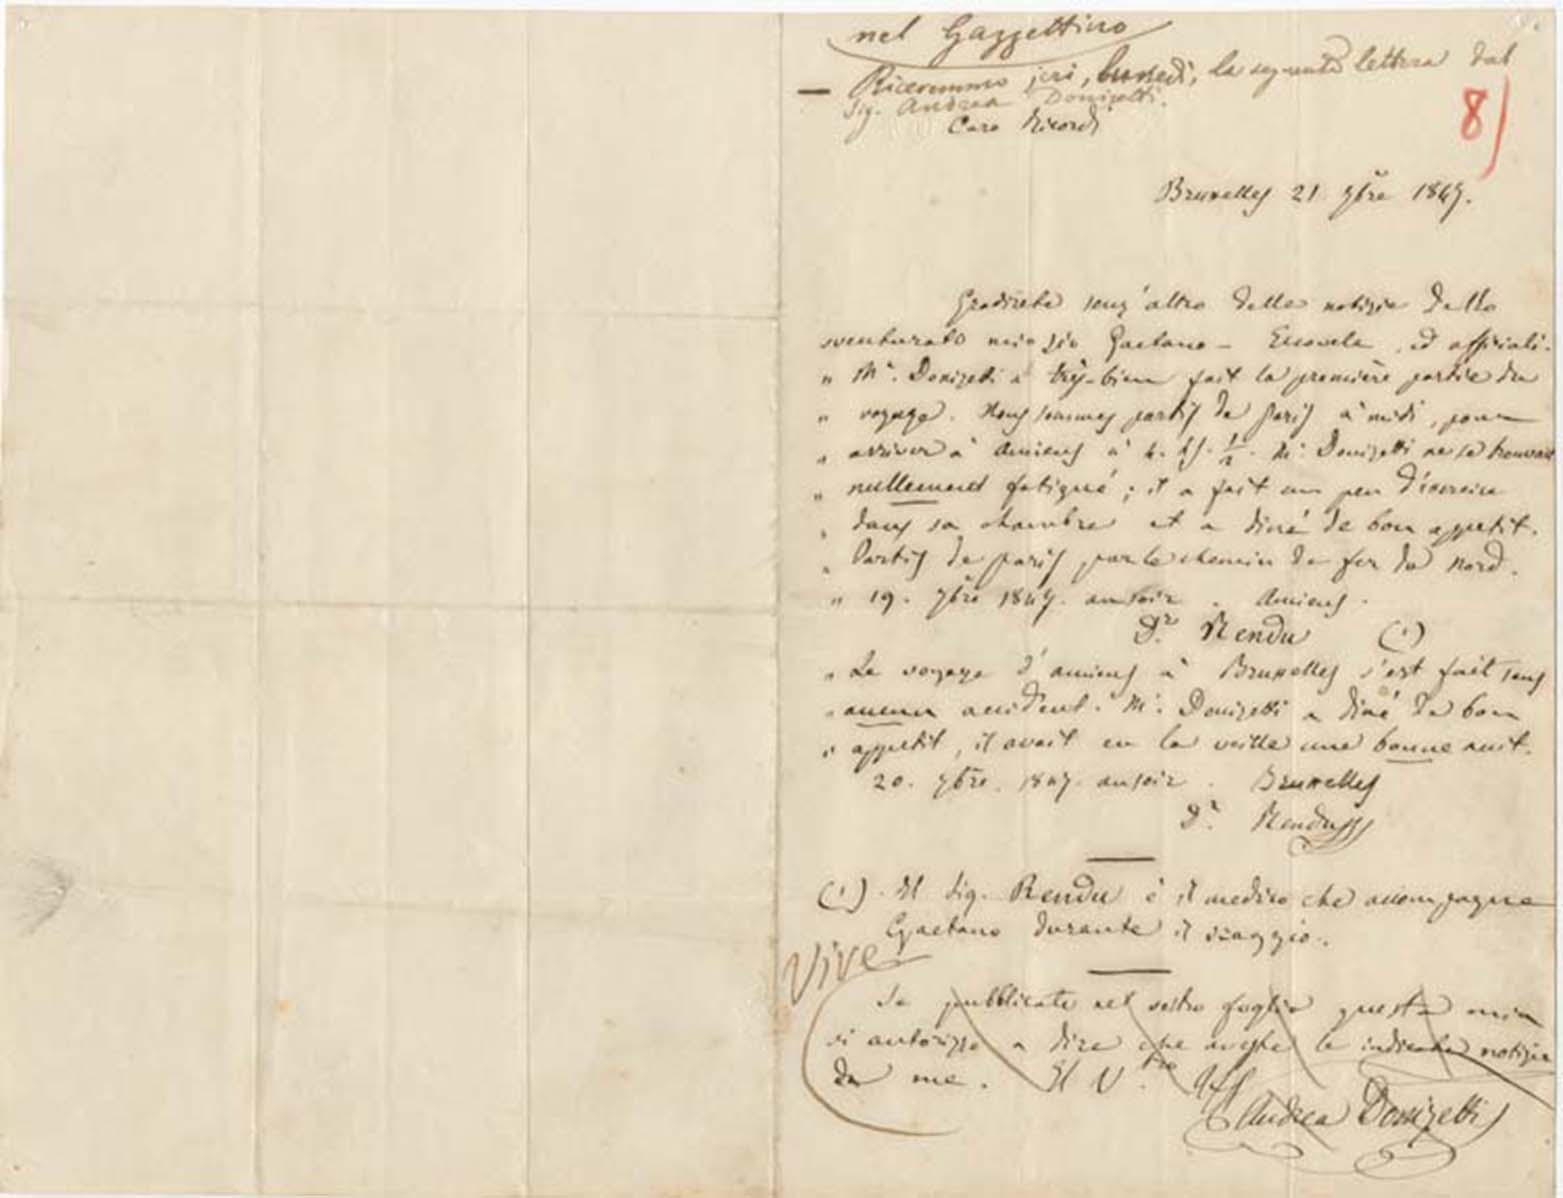 nel Gazzettino
— Ricevemmo jeri, lunedì, la seguente lettera dal
Sig. Andrea Donizetti.
Caro Ricordi
8)
Bruxelles 21 9bre 1847.
Gradirete senz'altro delle notizie dello
sventurato mio zio Gaetano — Eccovele, ed officiali.
„ Mr. Donizetti a très-bien fait la première partie du
„ voyage. Nous sommes partis de Paris à midi, pour
„ arriver à Amiens à 4. hs. 1/2. Mr. Donizetti ne se trouvait
„ nullement fatigué; il a fait un peu d'exercice
„ dans sa chambre et a diné de bon appetit.
„ Partis de Paris par le chemin de fer du Nord.
„ 19. 9bre 1847. au soir. Amiens.
Dr. Rendu (1)
„ Le voyage d'Amiens à Bruxelles s'est fait sans
„ aucun accident. Mr. Donizetti a diné de bon
„ appetit, il avait eu la veille une bonne nuit.
20. 9bre. 1847. au soir. Bruxelles
Dr. Rendu
(1). Il Sig. Rendu è il medico che accompagna
Gaetano durante il viaggio.
Vive
Se pubblicate nel vostro foglio questa mia
vi autorizzo a dire che aveste le indicate notizie
da me. Il Vtro
Andrea Donizetti